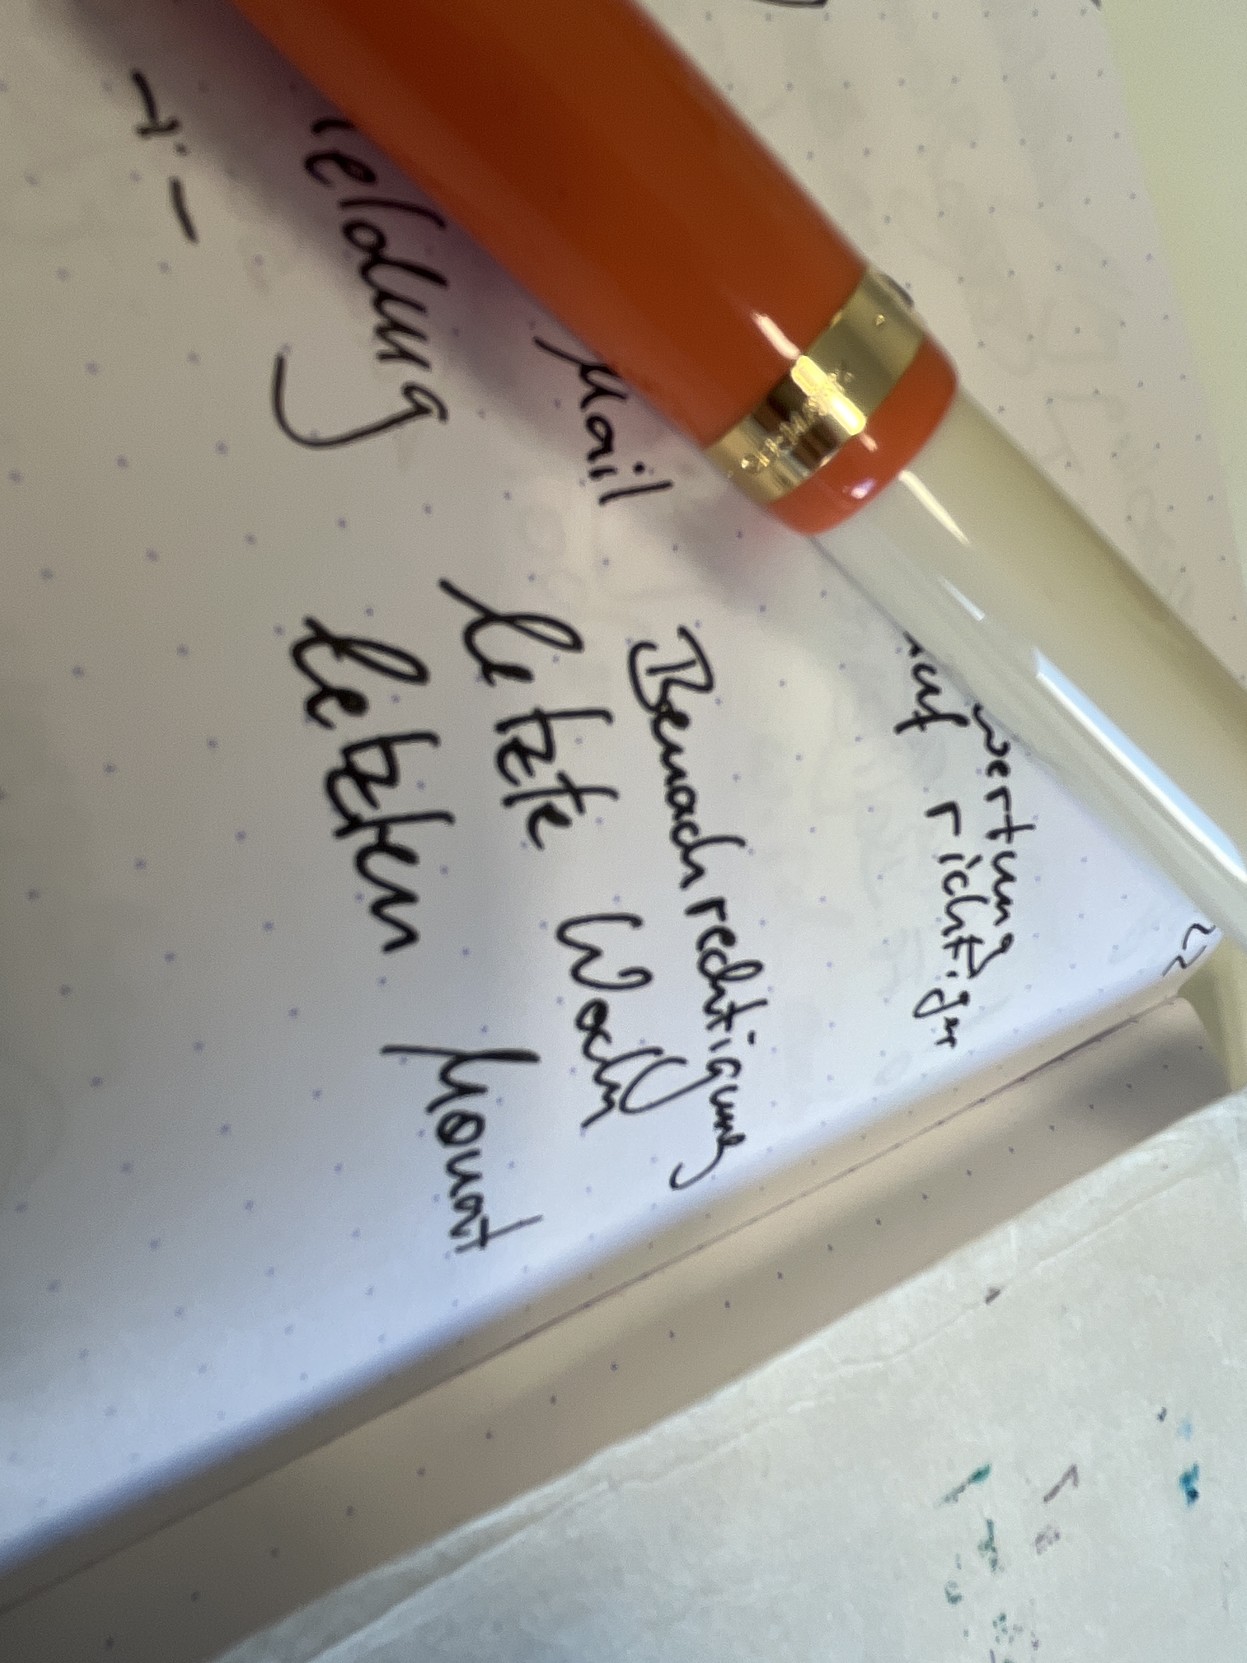 wertung
auf richtiger
Mail Benachrechtigung
eldung letzte Woche
letzten Monat